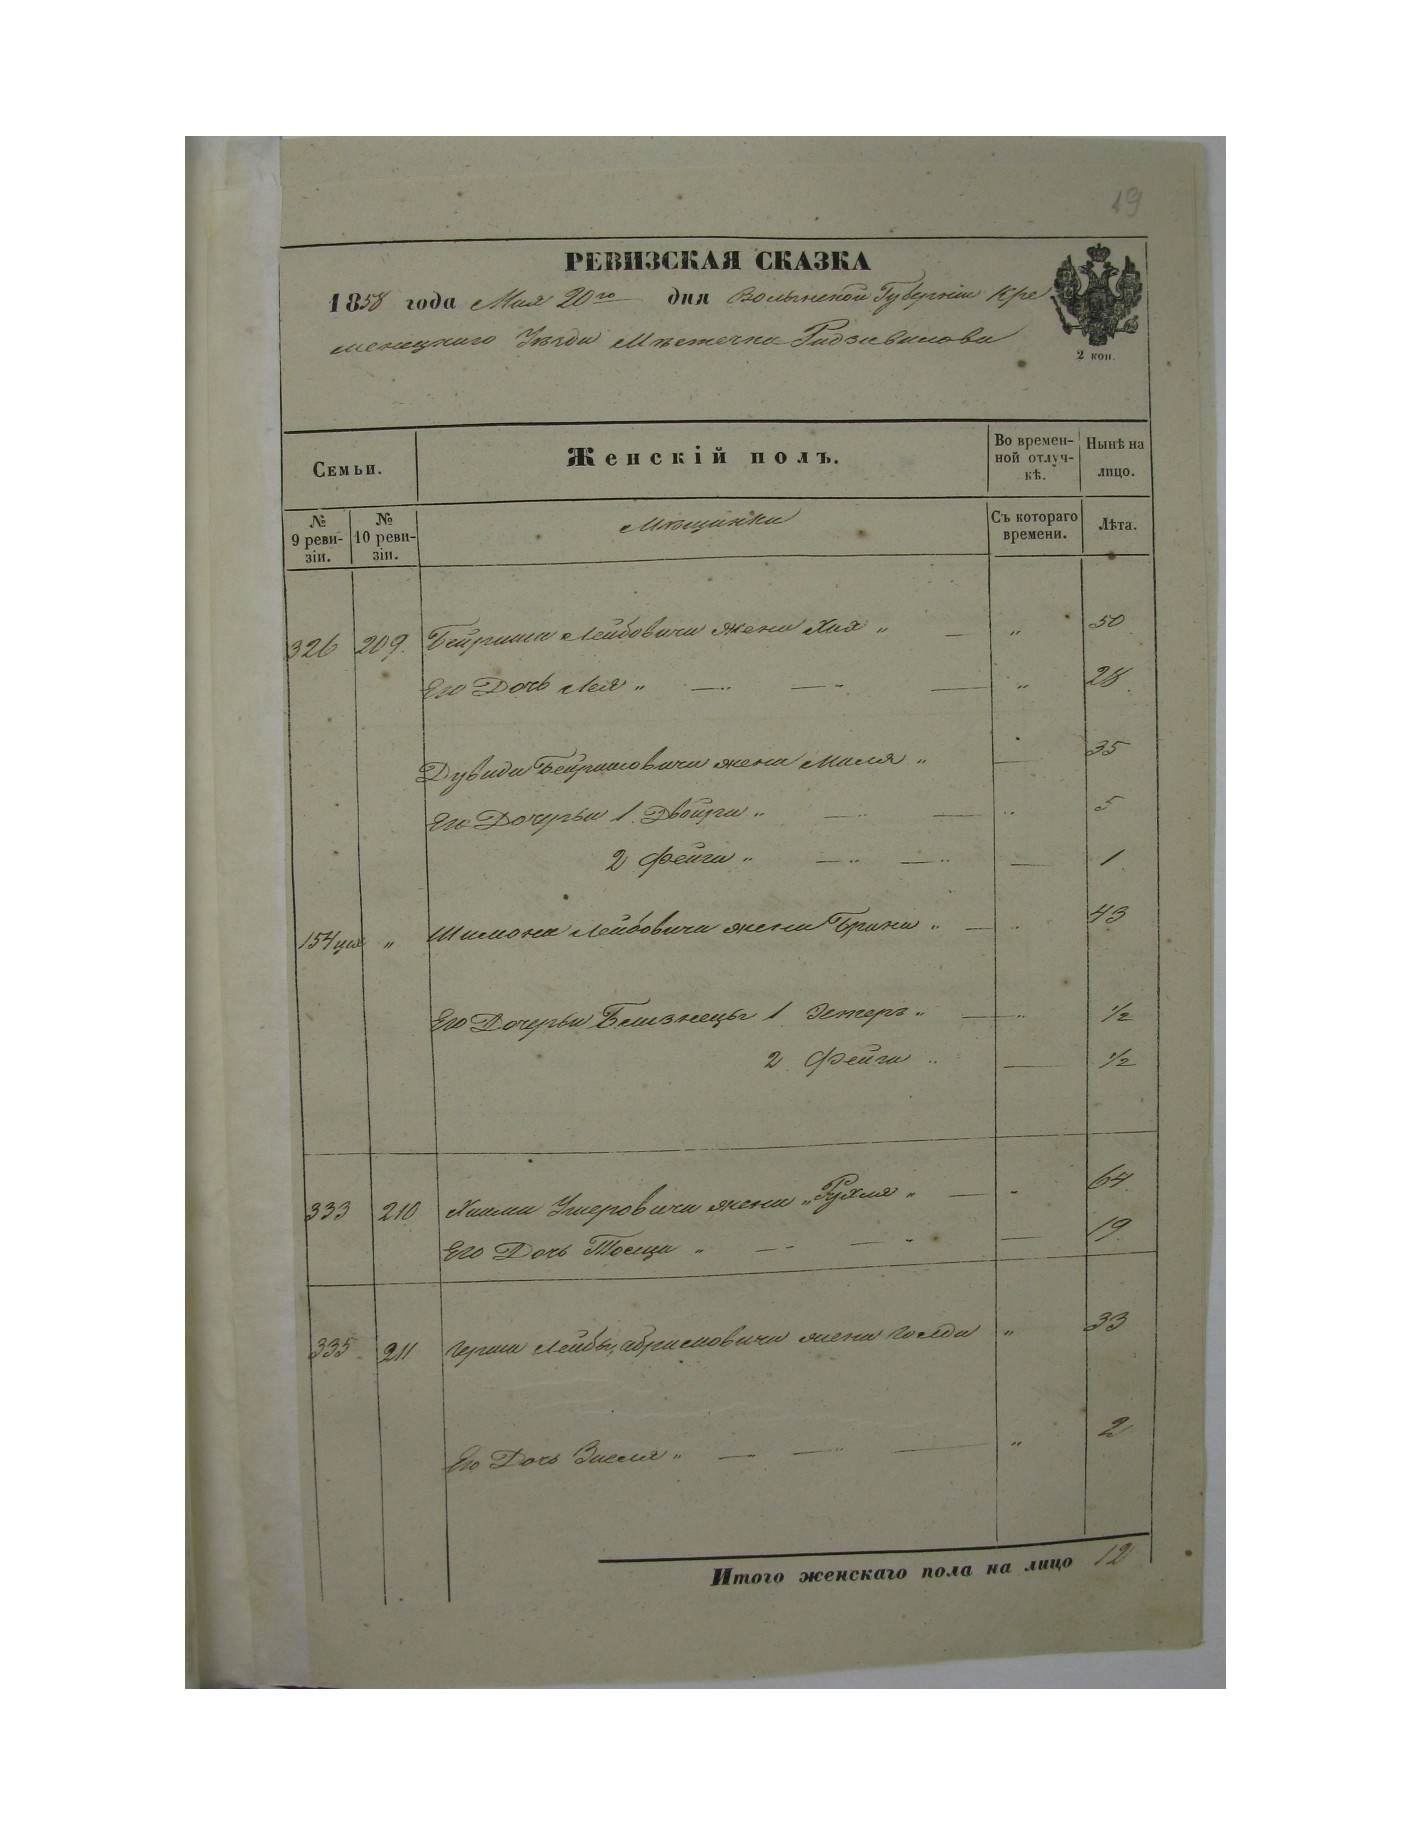 19
РЕВИЗСКАЯ СКАЗКА
1858 года Мая 20го дня Волынской Губерніи Кре
менецкаго Уѣзда Мѣстечка Радзивилова
2 коп.
Семьи. Женскій полъ. Во времен-ной отлуч-кѣ. Нынѣ на лицо.
№ 9 реви-зіи. № 10 реви-зіи. Мѣщанки Съ котораго времени. Лѣта.
326 209. Бейриша Лейбовича жена Хая „ — „ 50
Его Дочь Лея „ — „ — „ — „ 28
Дувида Бейришовича жена Маля „ — 35
Его Дочерьи 1. Двойра „ — „ — „ 5
2 Фейга „ — „ — „ — 1
154 „ Шимона Лейбовича жена Брана „ — „ 43
Его Дочерьи Близнецы 1 Эстеръ „ — „ 1/2
2 Фейга „ — 1/2
333 210 Хаима Ушеровича жена „ Рухля „ — „ 64
Его Дочь „ — „ — „ — 19
335 211 Герша Лейбы Абрамовича жена Голда „ 33
Его Дочь „ — — „ — „ 2
Итого женскаго пола на лицо 12